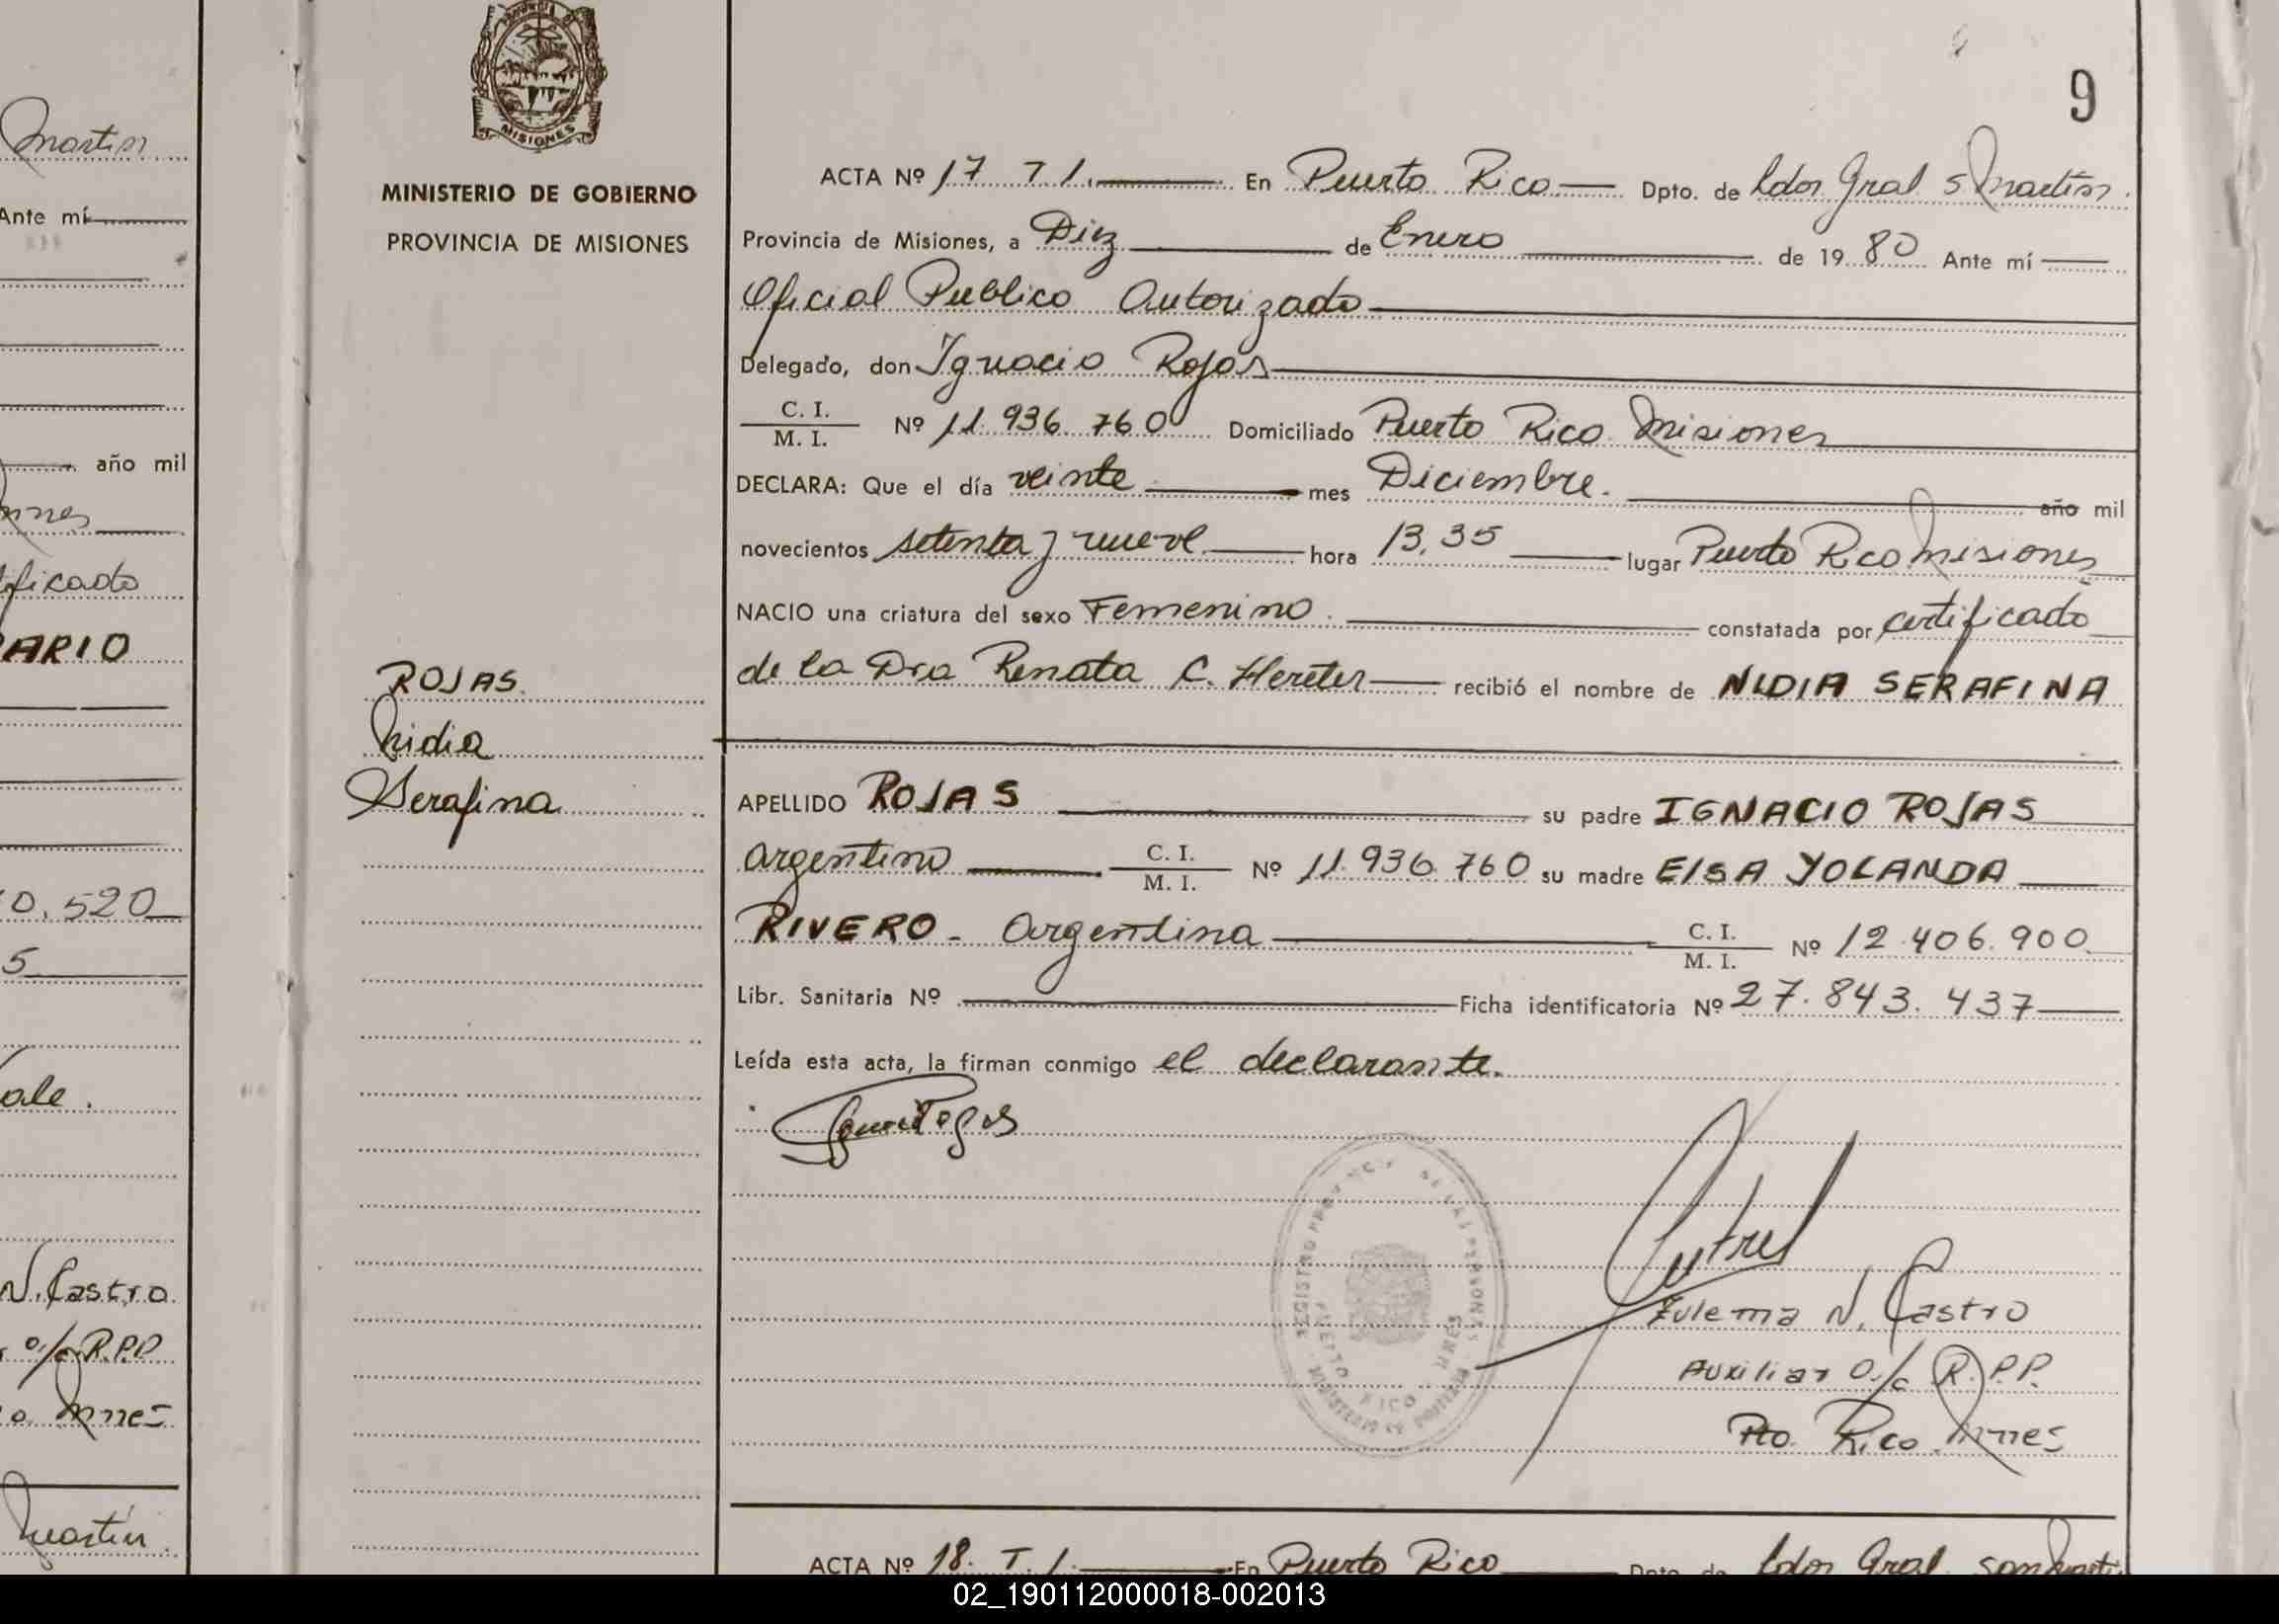 Martin
Ante mí
año mil
mnes
ificado
ARIO
0.520
5
ale.
N. Castro
o/c R.P.P.
o. Mnes
Martin.
MISIONES
MINISTERIO DE GOBIERNO
PROVINCIA DE MISIONES
ROJAS.
Nidia
Serafina
9
ACTA Nº 17 T 1. En Puerto Rico Dpto. de Ldor Gral S Martín.
Provincia de Misiones, a Diez de Enero de 1980 Ante mí
Oficial Publico Autorizado
Delegado, don Ignacio Rojas
C. I.
M. I. Nº 11.936.760 Domiciliado Puerto Rico Misiones
DECLARA: Que el día veinte mes Diciembre. año mil
novecientos setenta y nueve hora 13,35 lugar Puerto Rico Misiones
NACIO una criatura del sexo Femenino. constatada por certificado
de la Dra Renata C. Hereter recibió el nombre de NIDIA SERAFINA
APELLIDO ROJAS su padre IGNACIO ROJAS
argentino C. I.
M. I. Nº 11.936.760 su madre ELSA YOLANDA
RIVERO - Argentina C. I.
M. I. Nº 12.406.900
Libr. Sanitaria Nº Ficha identificatoria Nº 27.843.437
Leída esta acta, la firman conmigo el declarante.
REGISTRO DE LAS PERSONAS
PUERTO RICO MNES
MINISTERIO DE GOBIERNO
Zulema N. Castro
Auxiliar O/c R.P.P.
Pto. Rico Mnes
ACTA Nº 18. T. 1. En Puerto Rico Dpto de Ldor Gral. San Marti
02_190112000018-002013